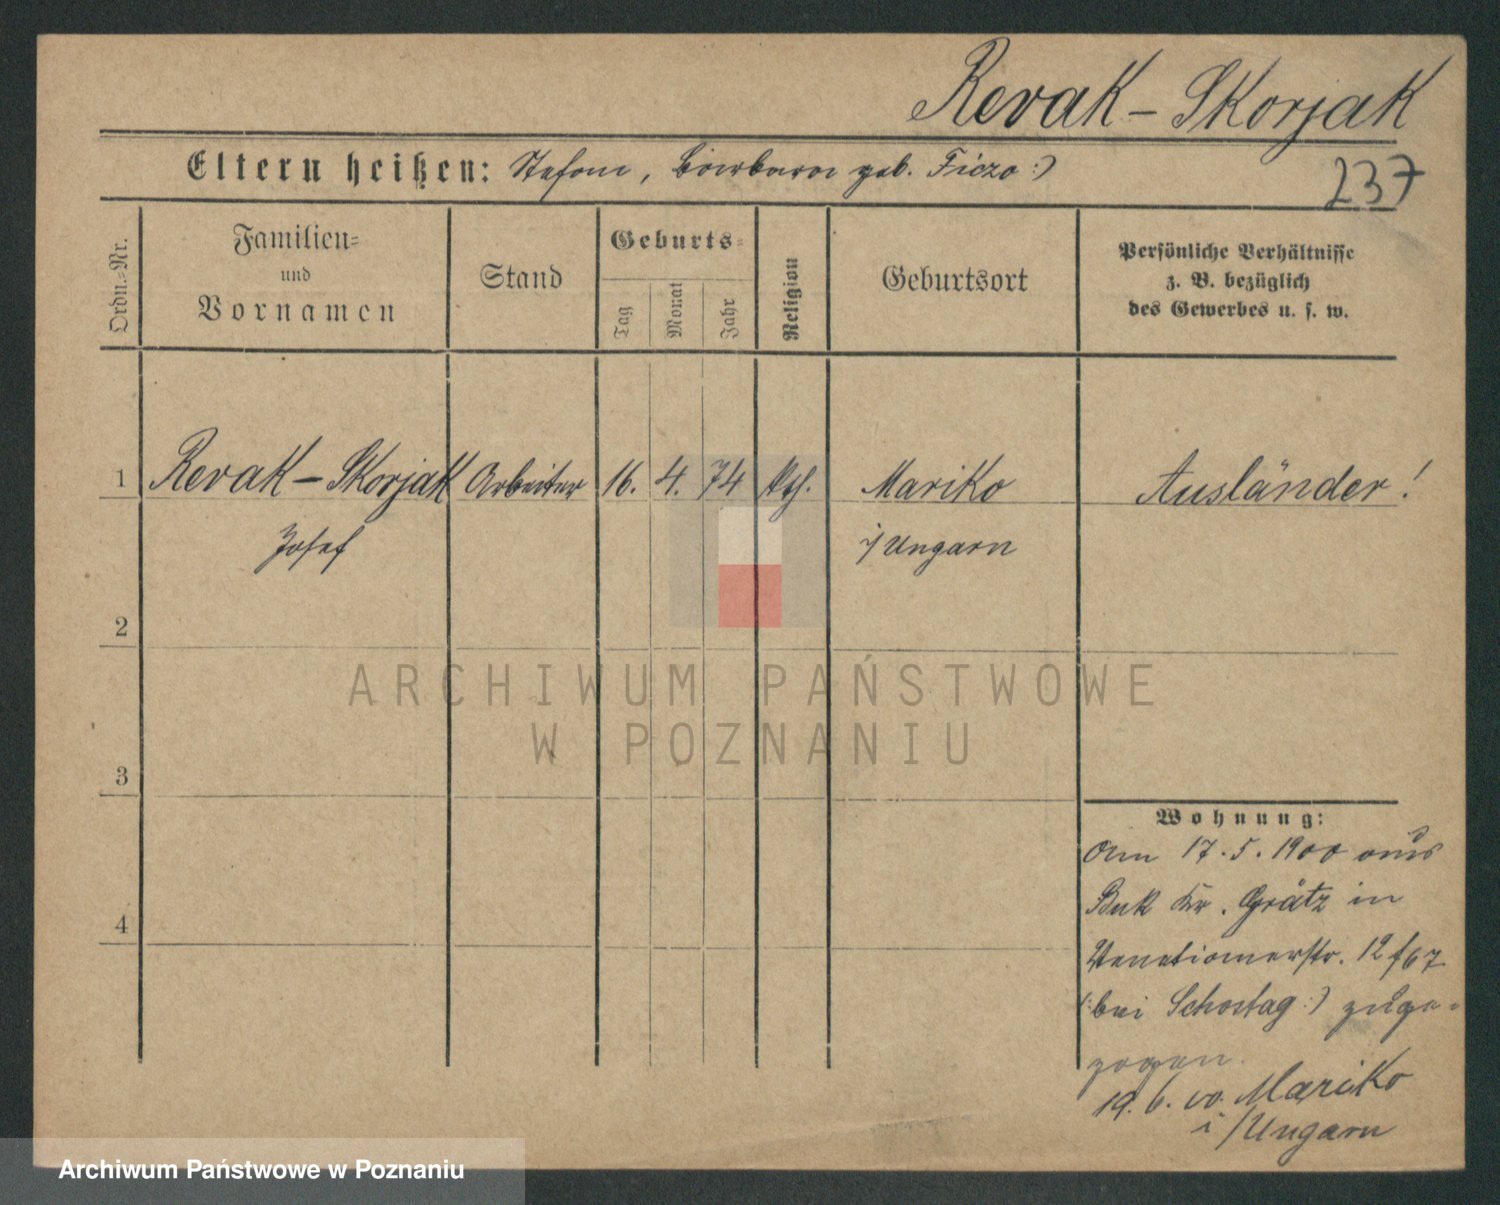 Revak – Skorjak
Eltern heißen: Stefan, Barbara geb. Ficzo :)
237
Ordn.-Nr.
Familien-
und
Vornamen
Stand
Geburts-
Tag
Monat
Jahr
Religion
Geburtsort
Persönliche Verhältnisse
z. B. bezüglich
des Gewerbes u. s. w.
1 Revak – Skorjak Arbeiter 16. 4. 74 kth. Mariko Ausländer!
Josef i/Ungarn
2
3
4
Wohnung:
Am 17.5.1900 aus
Buk Kr. Grätz in
Venetianerstr. 12 f 67
(: bei Schostag :) zuge-
zogen.
19. 6. 00. Mariko
i/Ungarn
ARCHIWUM PAŃSTWOWE
W POZNANIU
Archiwum Państwowe w Poznaniu